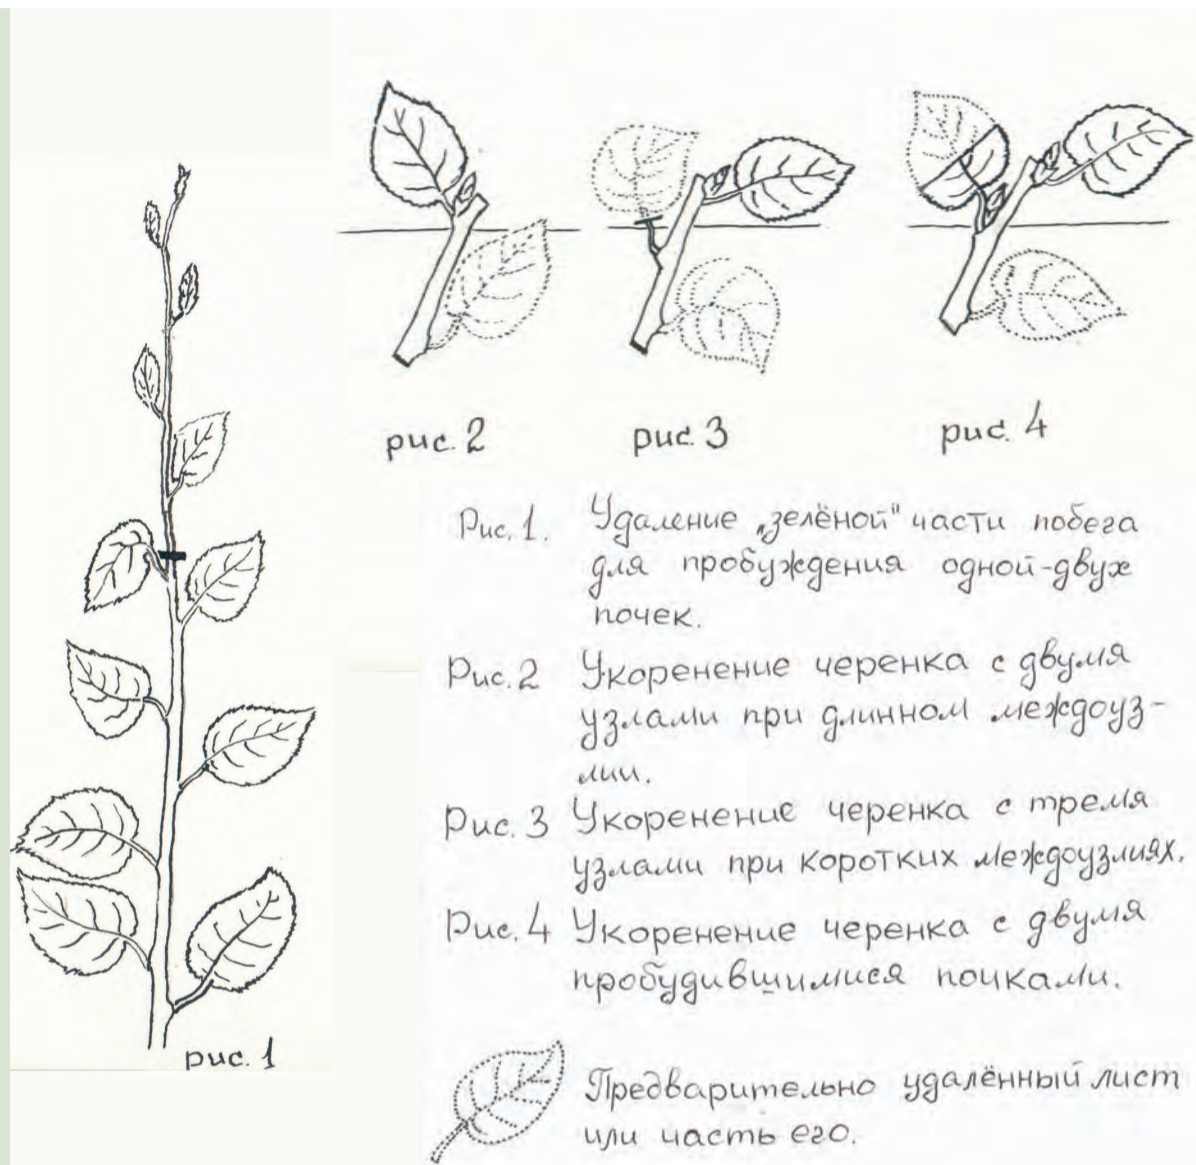 рис. 2
рис. 3
рис. 4
Рис. 1. Удаление „зелёной" части побега
для пробуждения одной-двух
почек.
Рис. 2 Укоренение черенка с двумя
узлами при длинном междоуз-
лии.
Рис. 3 Укоренение черенка с тремя
узлами при коротких междоузлиях.
Рис. 4 Укоренение черенка с двумя
пробудившимися почками.
рис. 1
Предварительно удалённый лист
или часть его.